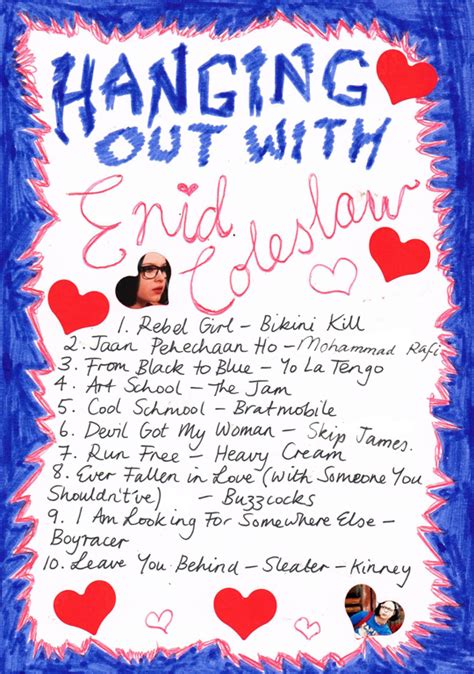 HANGING
OUT WITH
Enid
Coleslaw
1. Rebel Girl – Bikini Kill
2. Jaan Pehechaan Ho – Mohammad Rafi
3. From Black to Blue – Yo La Tengo
4. Art School – The Jam
5. Cool Schmool – Bratmobile
6. Devil Got My Woman – Skip James.
7. Run Free – Heavy Cream
8. Ever Fallen in Love (With Someone You
Shouldn't've) – Buzzcocks
9. I Am Looking For Somewhere Else –
Boyracer
10. Leave You Behind – Sleater-Kinney